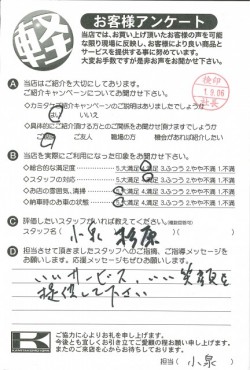 軽
お客様アンケート
当店では、お買い上げ頂いたお客様の声を可能
な限り現場に反映し、お客様により良い商品と
サービスを提供する事に努めています。
大変お手数ですが是非お声をお聞かせ下さい。
検印
1.9.06
社長
A 当店はご紹介を大切にしております。
ご紹介キャンペーンについてお聞かせ下さい。
◇カミタケご紹介キャンペーンのご説明はありましたでしょうか
はい いいえ
◇具体的にご紹介頂ける方との ご関係をお聞かせ下さいますでしょうか
ご友人 職場の方 機会があれば紹介したい
B 当店を実際にご利用になった印象をお聞かせ下さい。
◇総合的な満足度 5.大満足 4.満足 3.ふつう 2.やや不満 1.不満
◇スタッフの対応 5.大満足 4.満足 3.ふつう 2.やや不満 1.不満
◇お店の雰囲気、清掃 5.大満足 4.満足 3.ふつう 2.やや不満 1.不満
◇納車時のお車の状態 5.大満足 4.満足 3.ふつう 2.やや不満 1.不満
C 評価したいスタッフがいれば教えてください。(複数回答可)
スタッフ名( 小泉 杉原 )
D 担当させて頂きましたスタッフへのご指摘、ご指導メッセージを
お願いします。応援メッセージもぜひお願いします。
いいサービス、いい笑顔を
提供して下さい
K
ご協力に心よりお礼を申し上げます。
今後とも宜しくお引き立てご愛顧の程お願い申し上げます。
またのご来店を心からお待ちしております。
担当( 小泉 )